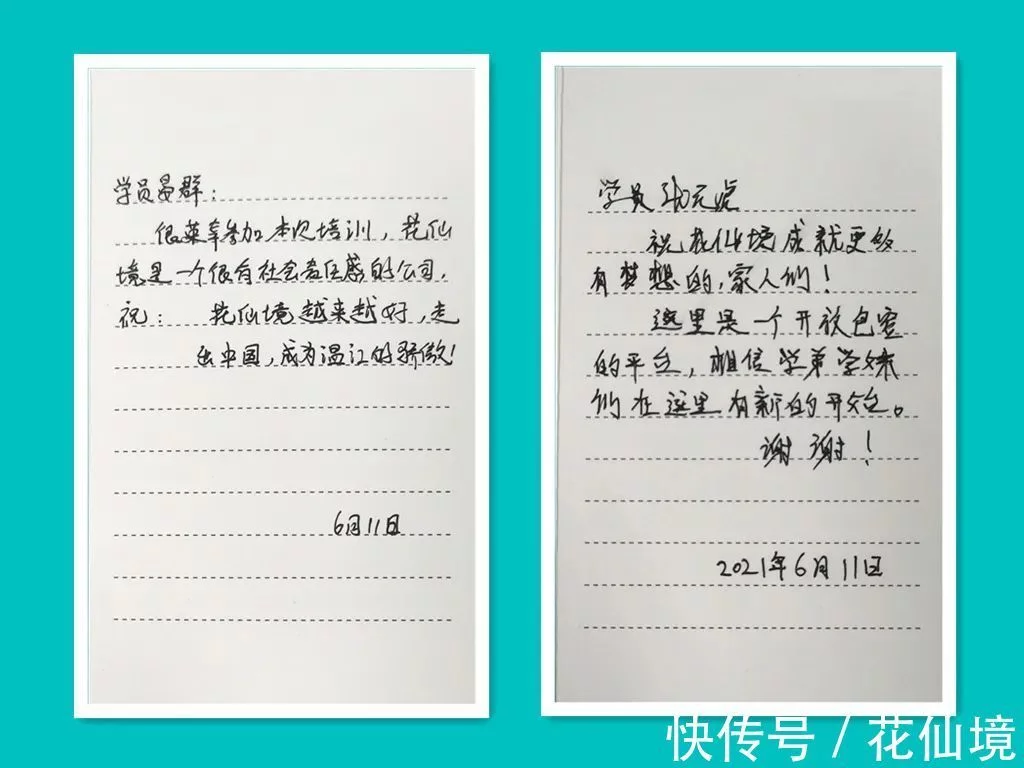 学员晏群:
很荣幸参加本次培训,花仙
境是一个很有社会责任感的公司,
祝: 花仙境越来越好,走
出中国,成为温江的骄傲!
6月11日
学员 张元虎
祝花仙境成就更多
有梦想的,家人们!
这里是一个开放包容
的平台,相信学弟学妹
们在这里有新的开始。
谢谢!
2021年6月11日
快传号 / 花仙境